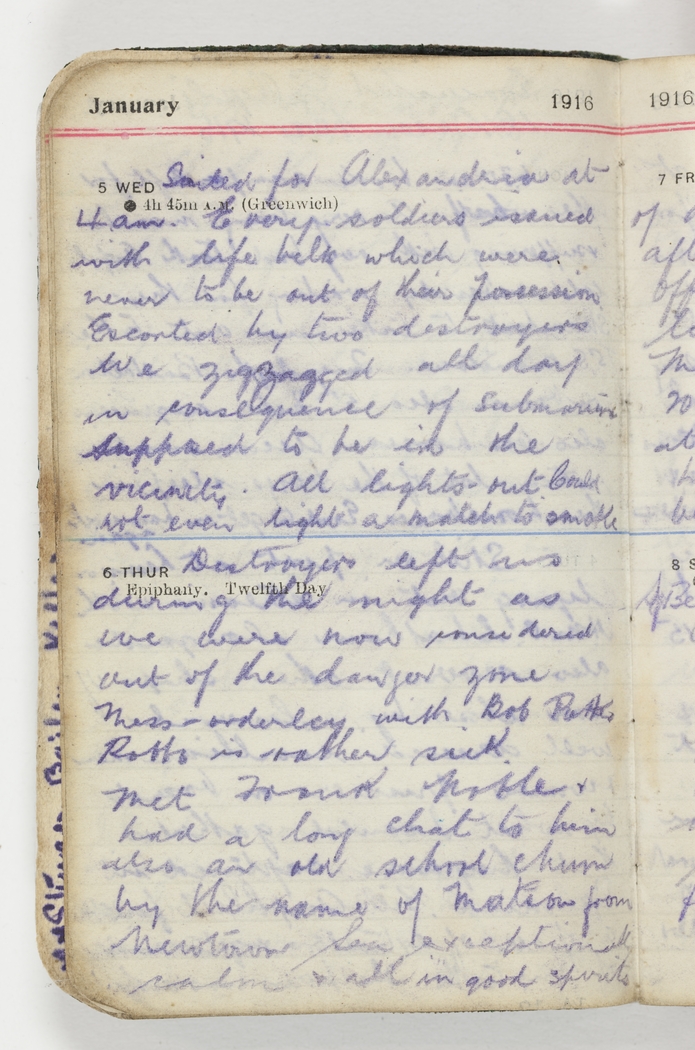 January 1916
5 WED Sailed for Alexandria at
4h 45m A.M. (Greenwich)
4 am. Every soldiers issued
with life belts which were
never to be out of their possession
Escorted by two destroyers
We zigzagged all day
in consequence of submarines
supposed to be in the
vicinity. All lights out Could
not even light a match to smoke
6 THUR Destroyers left us
Epiphany. Twelfth Day
during the night as
we were now considered
out of the danger zone
Mess-orderley with Bob Potts
Potts is rather sick.
Met Frank Noble &
had a long chat to him
also an old school chum
by the name of Matson from
Newtown Sea exceptionally
calm & all in good spirits
1916
7 FR
of
aft
off
at
8 S